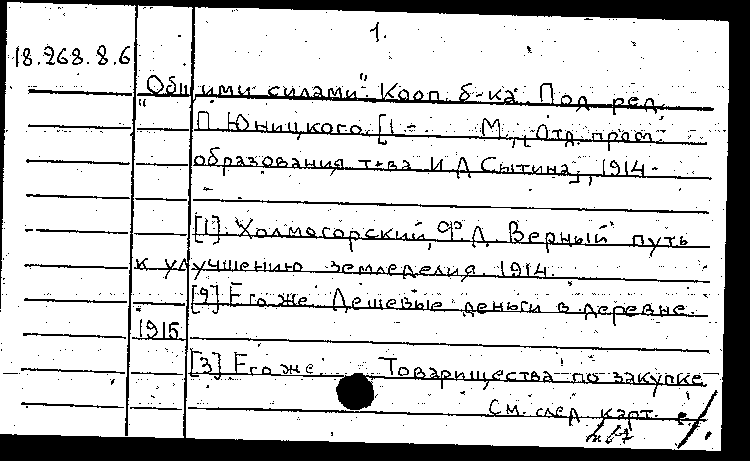 1.
18.268.8.6
"Общими силами". Кооп. б-ка. Под ред.
П. Юницкого. [1- М., Отд. пром.
образования т-ва И.Д. Сытина], 1914-
[1]. Холмогорский, Ф.Д. Верный путь
к улучшению земледелия. 1914.
[2] Его же. Дешевые деньги в деревне.
1915
[3] Его же. Товарищества по закупке
См. след. карт.